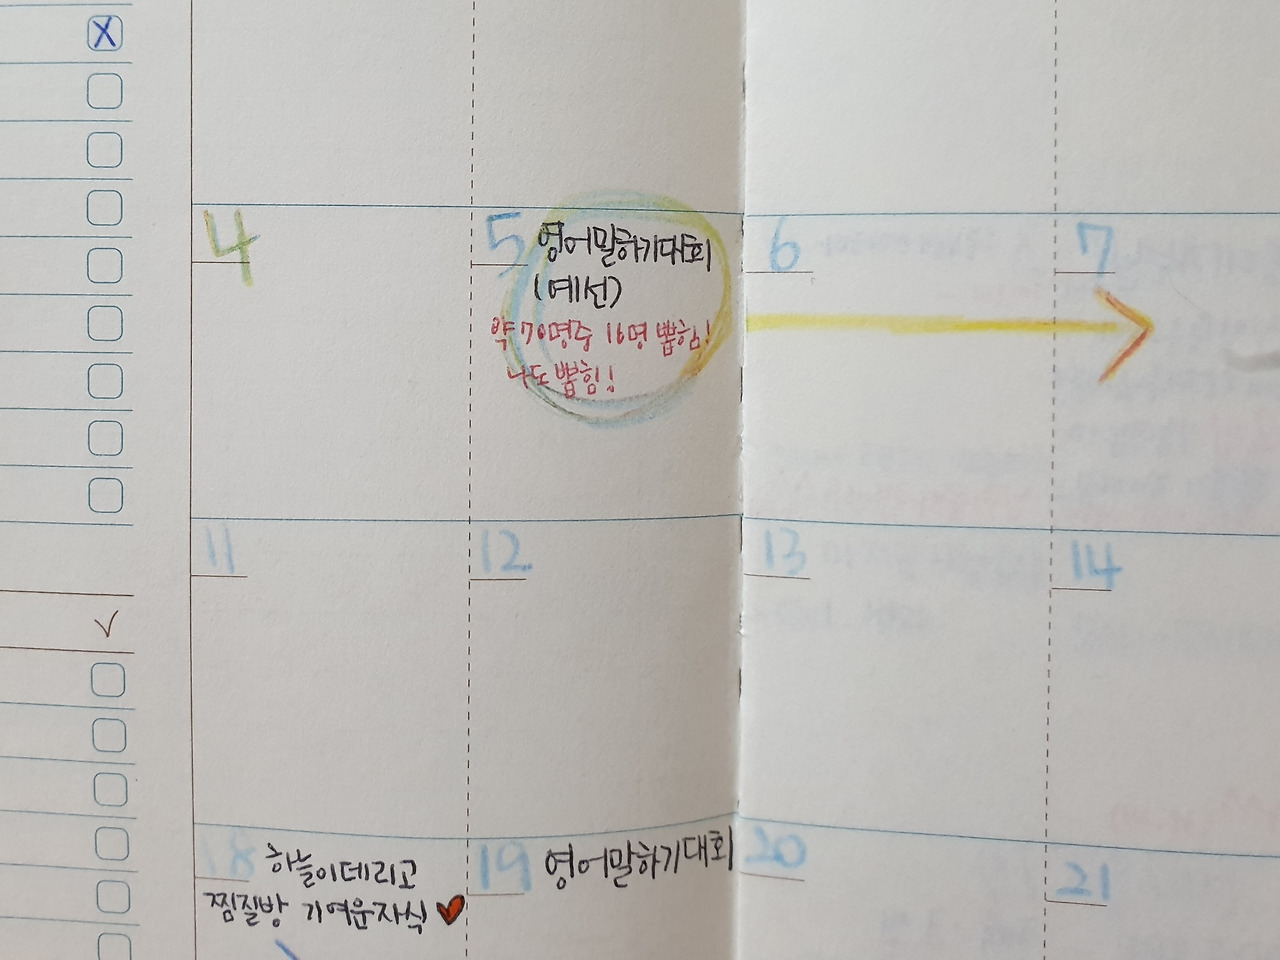 X
4
5 영어말하기대회
(예선)
약 70명중 16명 뽑힘!
나도 뽑힘!
6
7
11
12
13
14
18 하늘이데리고
찜질방 기여운자식
19 영어말하기대회
20
21